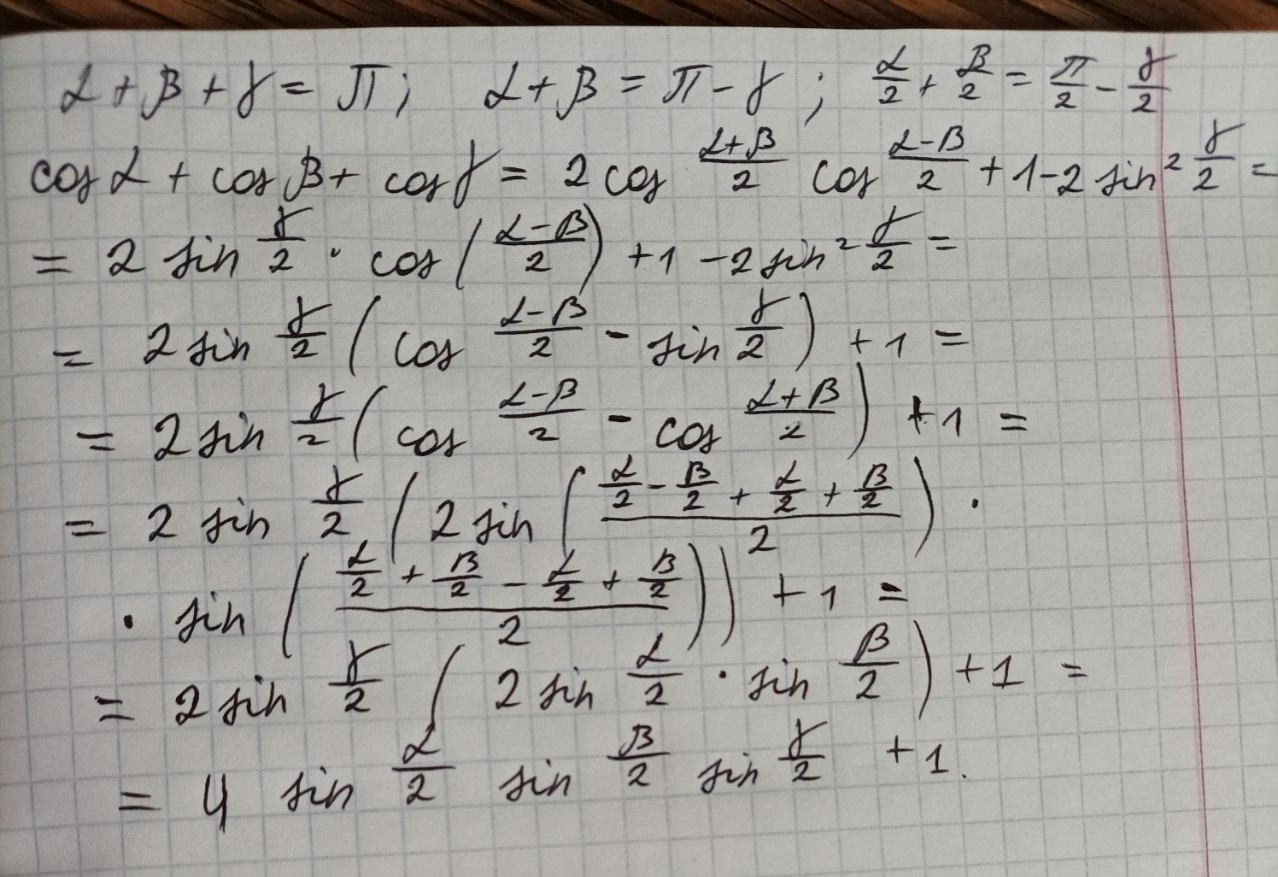 α + β + γ = π; α + β = π - γ; α/2 + β/2 = π/2 - γ/2
cos α + cos β + cos γ = 2 cos (α+β)/2 cos (α-β)/2 + 1 - 2 sin² γ/2 =
= 2 sin γ/2 · cos ((α-β)/2) + 1 - 2 sin² γ/2 =
= 2 sin γ/2 (cos (α-β)/2 - sin γ/2) + 1 =
= 2 sin γ/2 (cos (α-β)/2 - cos (α+β)/2) + 1 =
= 2 sin γ/2 (2 sin ((α/2 - β/2 + α/2 + β/2)/2) ·
· sin ((α/2 + β/2 - α/2 + β/2)/2)) + 1 =
= 2 sin γ/2 (2 sin α/2 · sin β/2) + 1 =
= 4 sin α/2 sin β/2 sin γ/2 + 1.